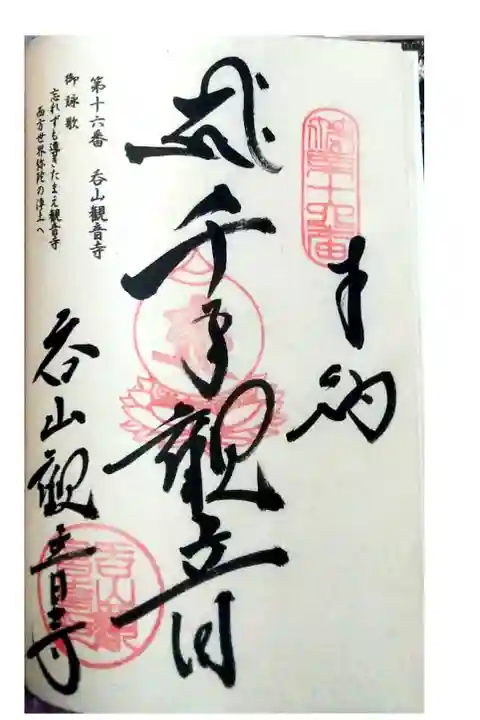 奉納
千手観音
呑山観音寺
第十六番 呑山観音寺
御詠歌
忘れずも導きたまえ観音寺
西方世界弥陀の浄土へ
第十六番